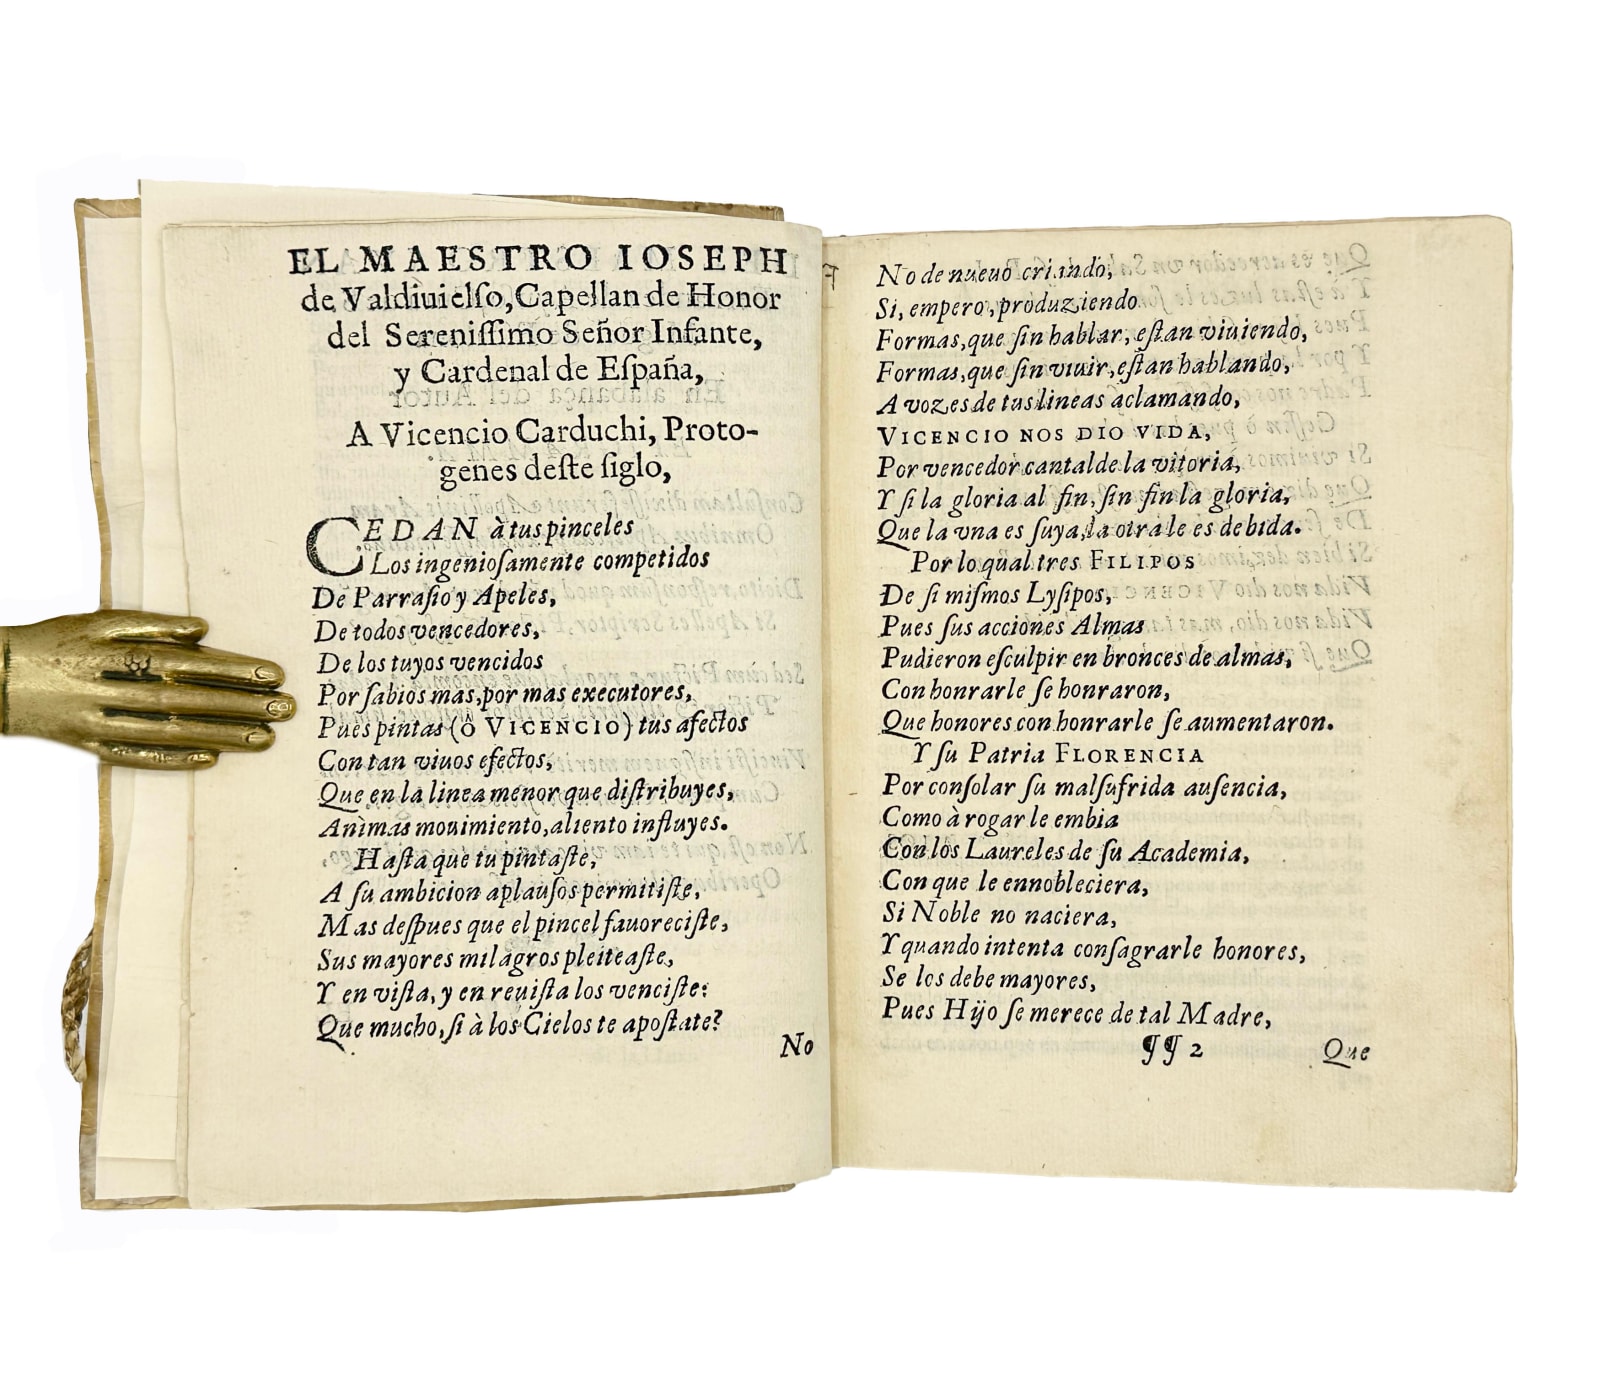 EL MAESTRO IOSEPH
de Valdiuielſo, Capellan de Honor
del Sereniſſimo Señor Infante,
y Cardenal de Eſpaña,
A Vicencio Carduchi, Proto-
genes deſte ſiglo,
CEDAN à tus pinceles
Los ingenioſamente competidos
De Parraſio y Apeles,
De todos vencedores,
De los tuyos vencidos
Por ſabios mas, por mas executores,
Pues pintas (ô VICENCIO) tus afectos
Con tan viuos efectos,
Que en la linea menor que diſtribuyes,
Animas mouimiento, aliento influyes.
Haſta que tu pintaſte,
A ſu ambicion aplauſos permitiſte,
Mas deſpues que el pincel fauoreciſte,
Sus mayores milagros pleiteaſte,
Y en viſta, y en reuiſta los venciſte:
Que mucho, ſi à los Cielos te apoſtate?
No
No de nueuo criando,
Si, empero, produziendo
Formas, que ſin hablar, eſtan viuiendo,
Formas, que ſin viuir, eſtan hablando,
A vozes de tus lineas aclamando,
VICENCIO NOS DIO VIDA,
Por vencedor cantalde la vitoria,
Y ſi la gloria al fin, ſin fin la gloria,
Que la vna es ſuya, la otra le es debida.
Por lo qual tres FILIPOS
De ſi miſmos Lyſipos,
Pues ſus acciones Almas
Pudieron eſculpir en bronces de almas,
Con honrarle ſe honraron,
Que honores con honrarle ſe aumentaron.
Y ſu Patria FLORENCIA
Por conſolar ſu malſufrida auſencia,
Como à rogar le embia
Con los Laureles de ſu Academia,
Con que le ennobleciera,
Si Noble no naciera,
Y quando intenta conſagrarle honores,
Se los debe mayores,
Pues Hijo ſe merece de tal Madre,
¶¶ 2
Que